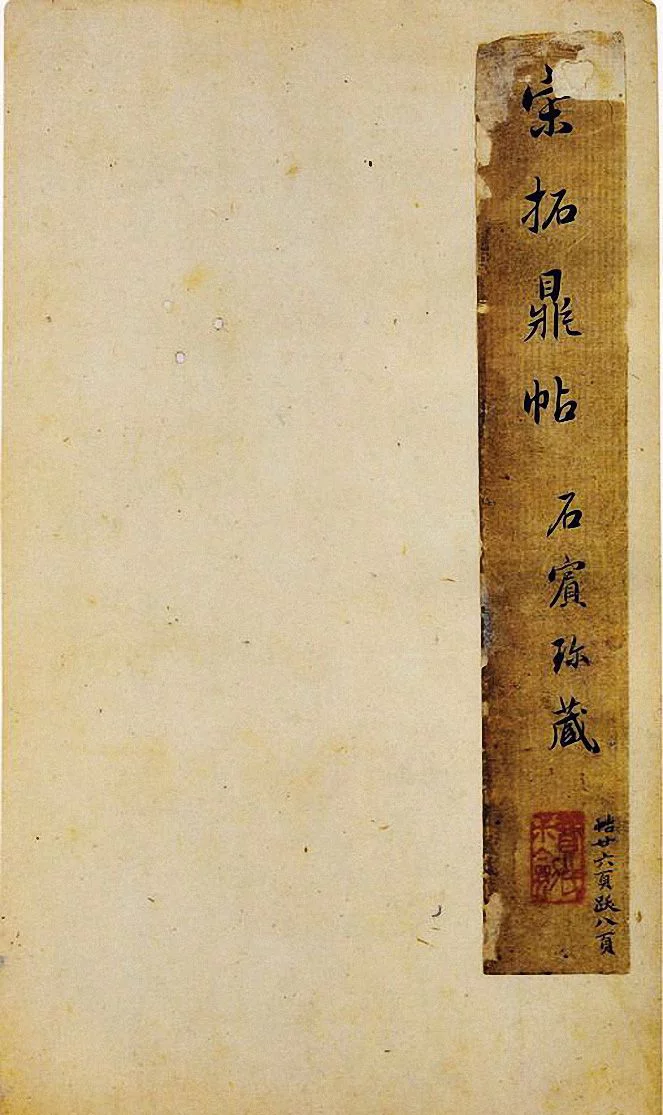 宋拓鼎帖
石賔珎蔵
帖廿六頁跋八頁